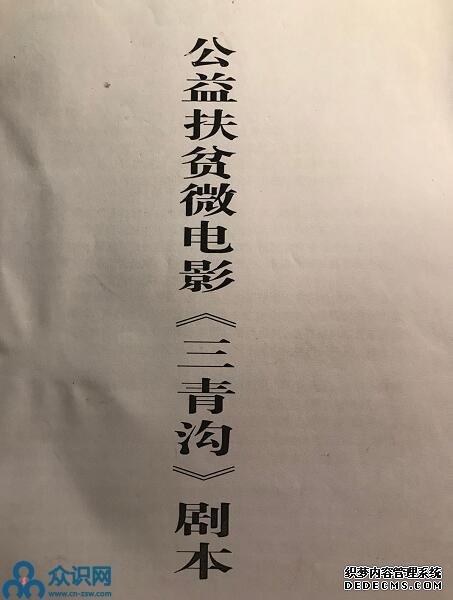 公益扶贫微电影《三青沟》剧本
众识网
www.cn-zsw.com
织梦内容管理系统
DEDECMS.COM